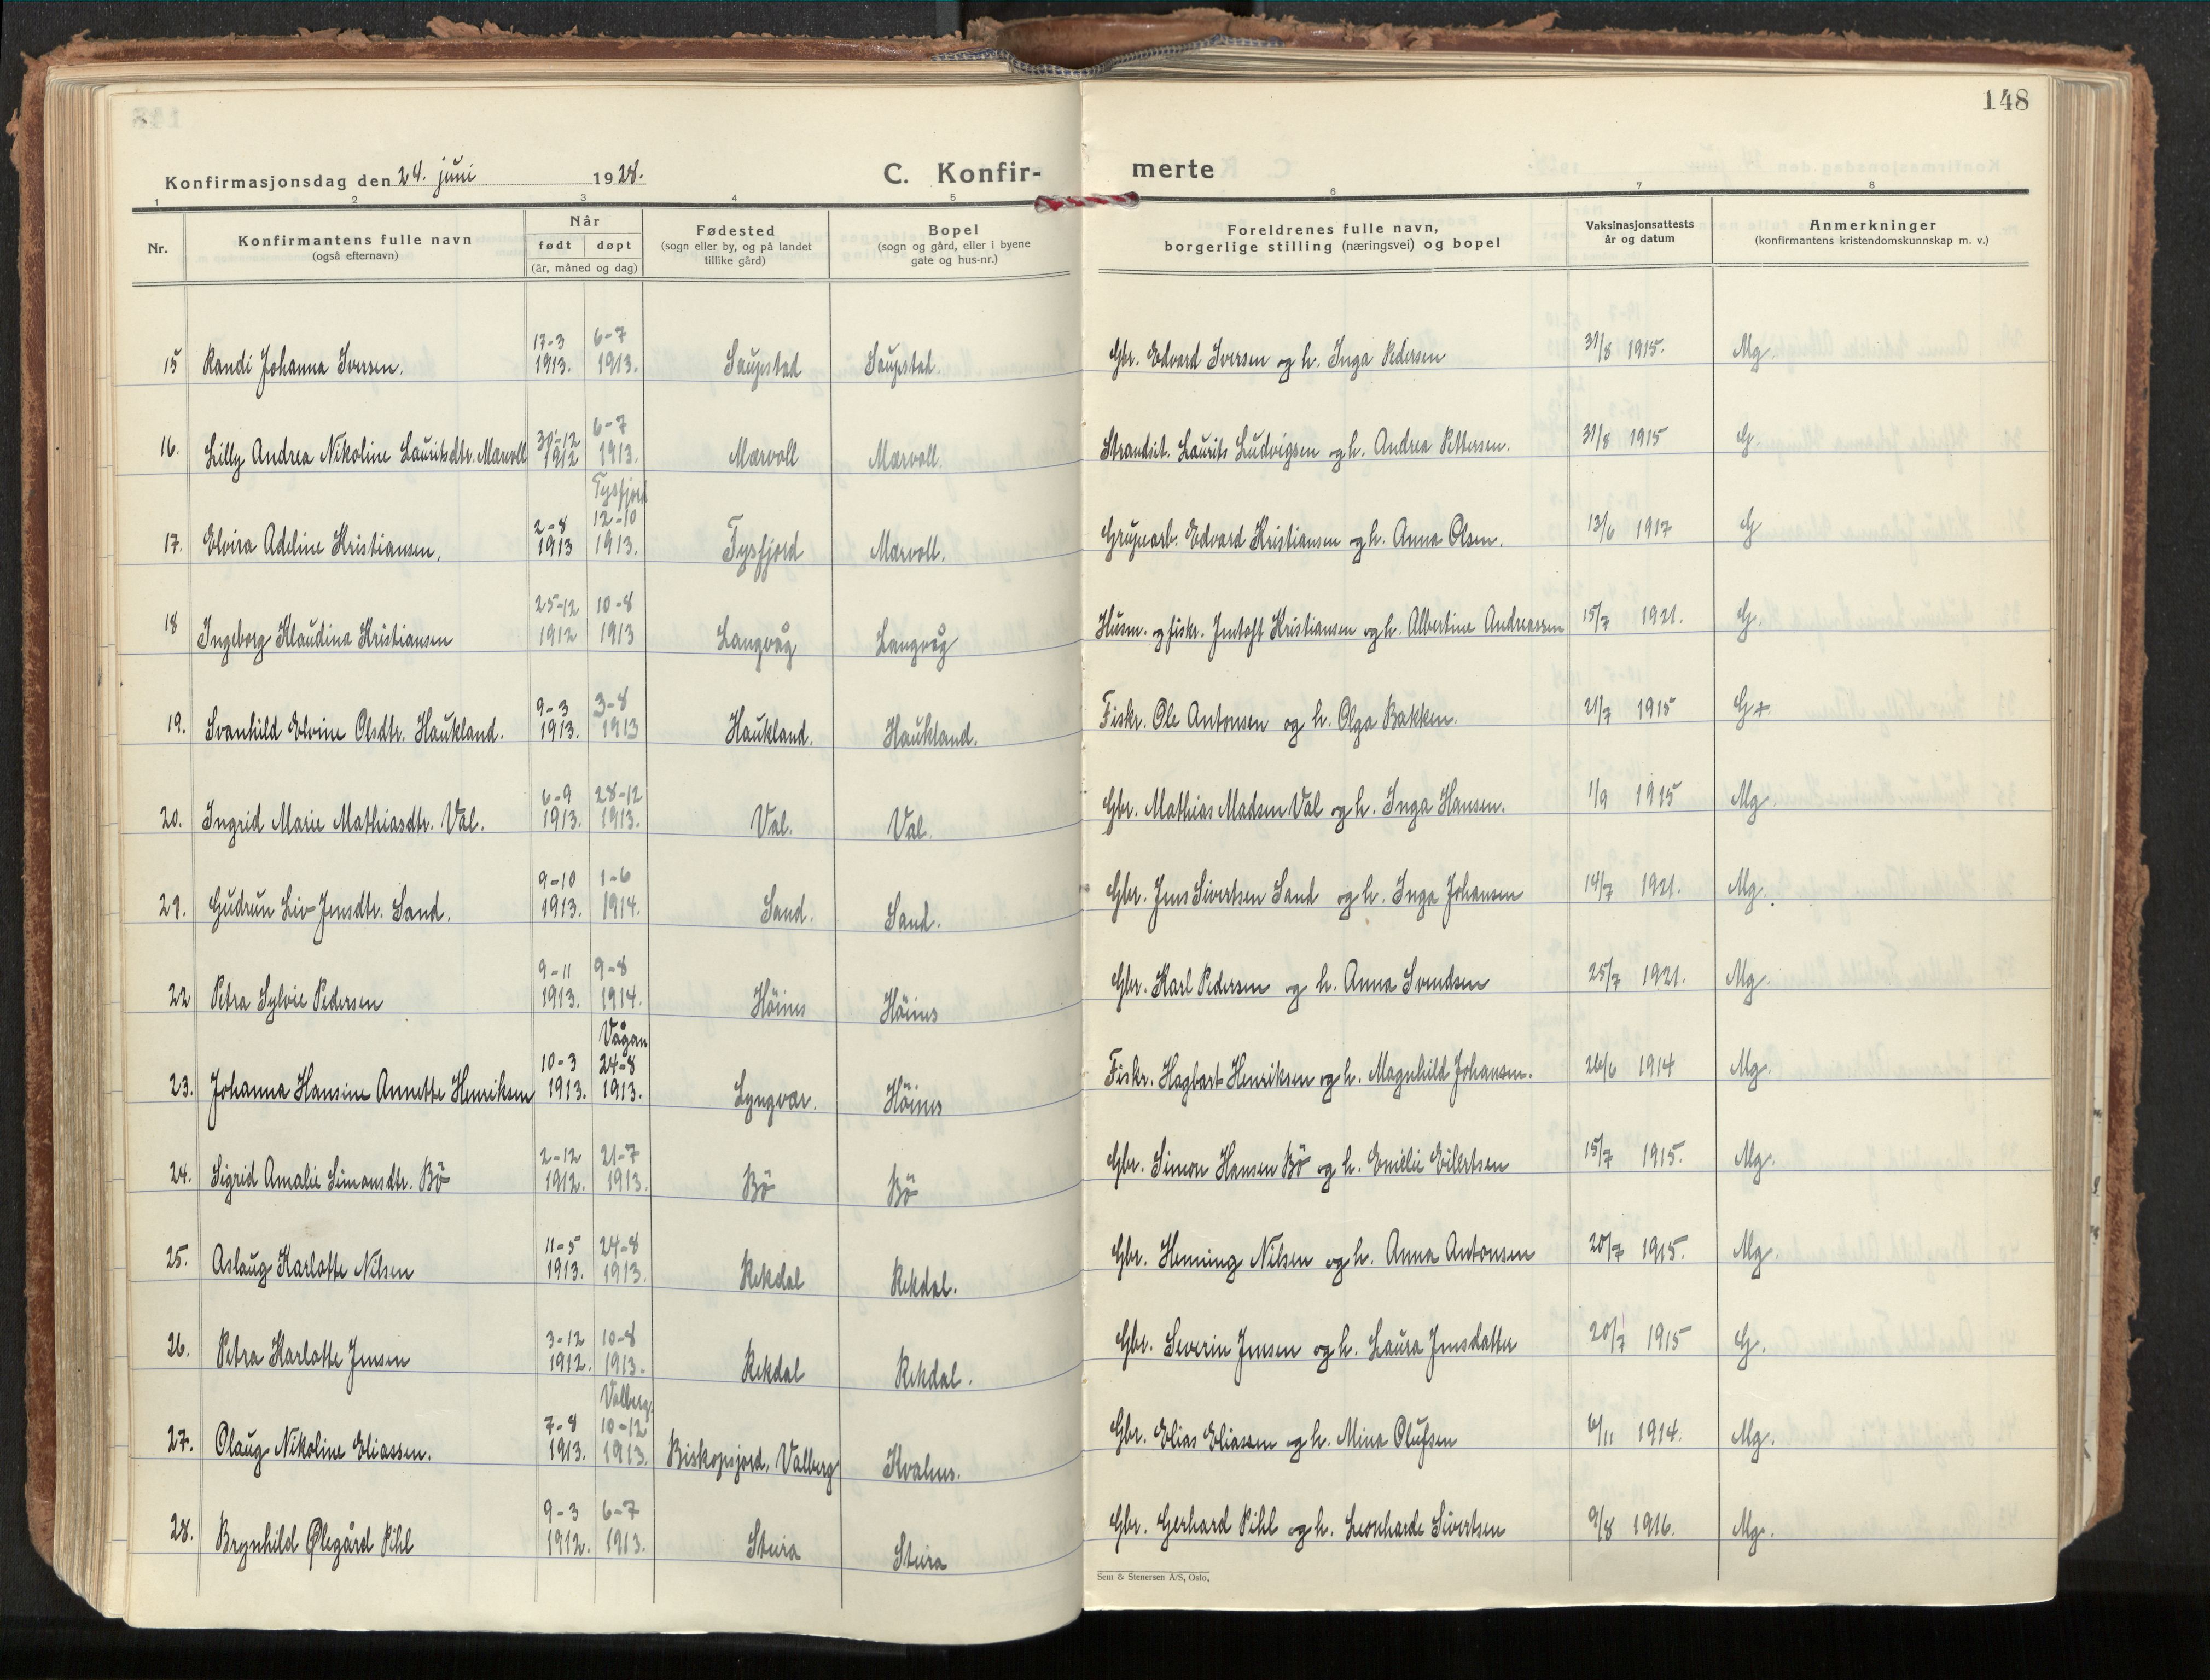 148
Konfirmasjonsdag den 24. juni 1928.
C. Konfir-
merte
1 2 3 4 5 6 7 8
Nr. Konfirmantens fulle navn (også efternavn) Når født døpt (år, måned og dag) Fødested (sogn eller by, og på landet tillike gård) Bopel (sogn og gård, eller i byene gate og hus-nr.) Foreldrenes fulle navn, borgerlige stilling (næringsvei) og bopel Vaksinasjonsattests år og datum Anmerkninger (konfirmantens kristendomskunnskap m. v.)
15 Randi Johanna Iversen. 17-3 1913. 6-7 1913. Saupstad Saupstad. Gbr. Edvard Iversen og h. Inga Pedersen 31/8 1915. Mg
16. Lilly Andrea Nikoline Lauritsdtr. Mærvoll 30-12 1912 6-7 1913. Mærvoll Mærvoll. Strandsit. Laurits Ludvigsen og h. Andrea Pettersen. 31/8 1915 G.
17. Elvira Adeline Kristiansen. 2-8 1913 Tysfjord 12-10 1913. Tysfjord Mærvoll. Grupearb. Edvard Kristiansen og h. Anna Olsen. 13/6 1917 G
18 Ingeborg Klaudina Kristiansen 25-12 1912 10-8 1913 Langvåg Langvåg Husm. og fiskr. Jentoft Kristiansen og h. Albertine Andreassen 15/7 1921. G.
19. Svanhild Elvine Olsdtr. Haukland. 9-3 1913. 3-8 1913 Haukland. Haukland. Fiskr. Ole Antonsen og h. Olga Bakken. 21/7 1915 G+.
20. Ingrid Marie Mathiasdtr. Val. 6-9 1913. 28-12 1913. Val. Val. Gbr. Mathias Madsen Val og h. Inga Hansen. 1/9 1915 Mg
21. Gudrun Liv Jensdtr. Sand. 9-10 1913. 1-6 1914. Sand. Sand. Gbr. Jens Sivertsen Sand og h. Inga Johansen 14/7 1921. Mg.
22 Petra Sylvie Pedersen 9-11 1913. 9-8 1914. Höines Höines Gbr. Karl Pedersen og h. Anna Svendsen 25/7 1921. Mg.
23. Johanna Hansine Annette Henriksen 10-3 1913. Vågan 24-8 1913. Lyngvær. Höines Fiskr. Hagbart Henriksen og h. Magnhild Johansen. 26/6 1914 Mg.
24. Sigrid Amalie Simonsdtr. Bö 2-12 1912. 21-7 1913. Bö Bö Gbr. Simon Hansen Bö og h. Emelie Eilertsen 15/7 1915. Mg.
25. Aslaug Karlotte Nilsen 11-5 1913. 24-8 1913. Rekdal Rekdal. Gbr. Henning Nilsen og h. Anna Antonsen 20/7 1915. Mg.
26. Petra Karlotte Jensen 3-12 1912. 10-8 1913. Rekdal Rekdal. Gbr. Severin Jensen og h. Laura Jensdatter 20/7 1915 G.
27. Olaug Nikoline Eliassen. 7-8 1913. Valberg. 10-12 1913. Biskopsjord, Valberg Kvalnes. Gbr. Elias Eliassen og h. Mina Olufsen 6/11 1914. Mg.
28. Brynhild Ølegård Pihl 9-3 1912. 6-7 1913. Steira Steira Gbr. Gerhard Pihl og h. Leonharde Sivertsen 9/8 1916. Mg.
Sem & Stenersen A/S, Oslo.